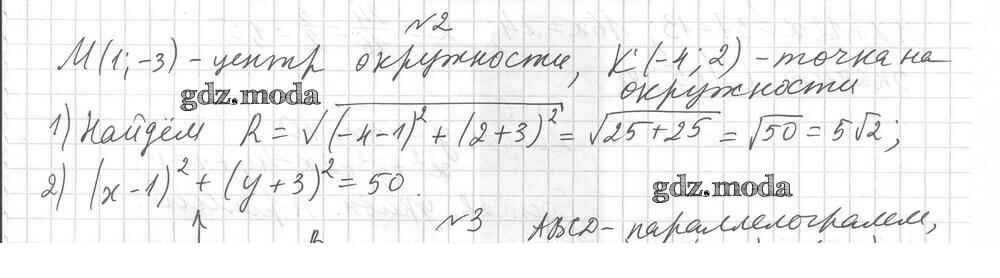 №2
M(1;-3) - центр окружности, K(-4; 2) - точка на
окружности
gdz.moda
1) Найдём R = √(-4-1)² + (2+3)² = √25+25 = √50 = 5√2;
2) (x-1)² + (y+3)² = 50.
gdz.moda
№3 ABCD - параллелограмм,